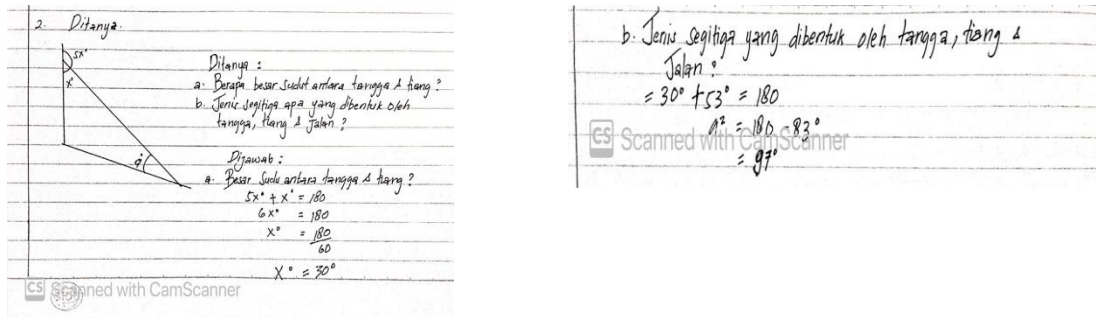 2. Ditanya.
5x°
x
a
Ditanya :
a. Berapa besar sudut antara tangga & tiang ?
b. Jenis segitiga apa yang dibentuk oleh
tangga, tiang & Jalan ?
Dijawab :
a. Besar Sudu antara tangga & tiang ?
5x° + x° = 180
6x° = 180
x° = 180
60
x° = 30°
CS Scanned with CamScanner
b. Jenis segitiga yang dibentuk oleh tangga, tiang &
Jalan ?
= 30° + 53° = 180
a² = 180 - 83°
= 97°
CS Scanned with CamScanner